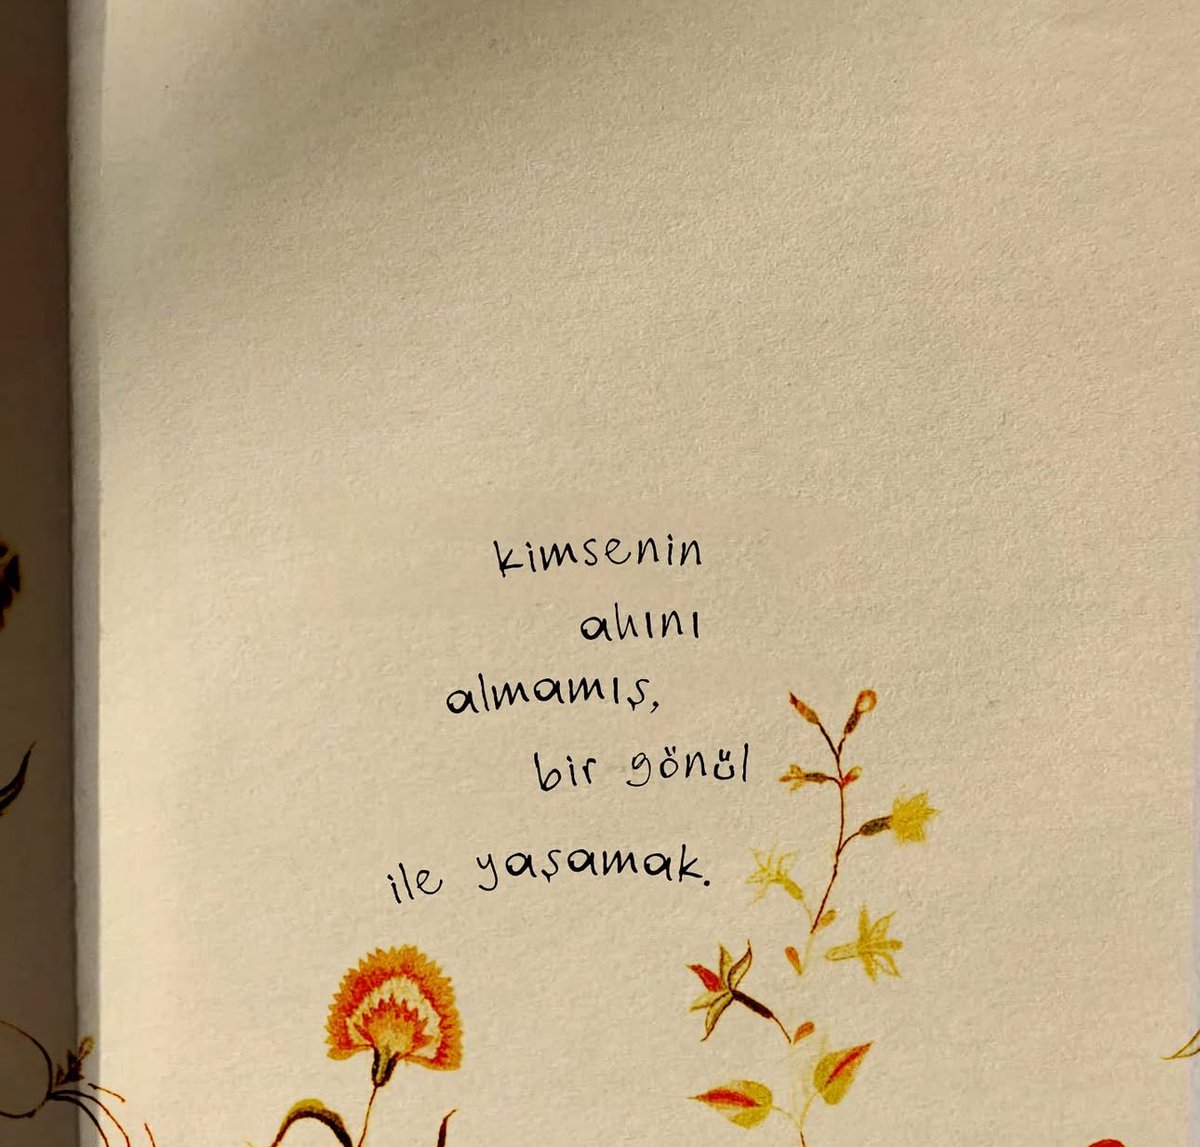 kimsenin
ahını
almamış,
bir gönül
ile yaşamak.